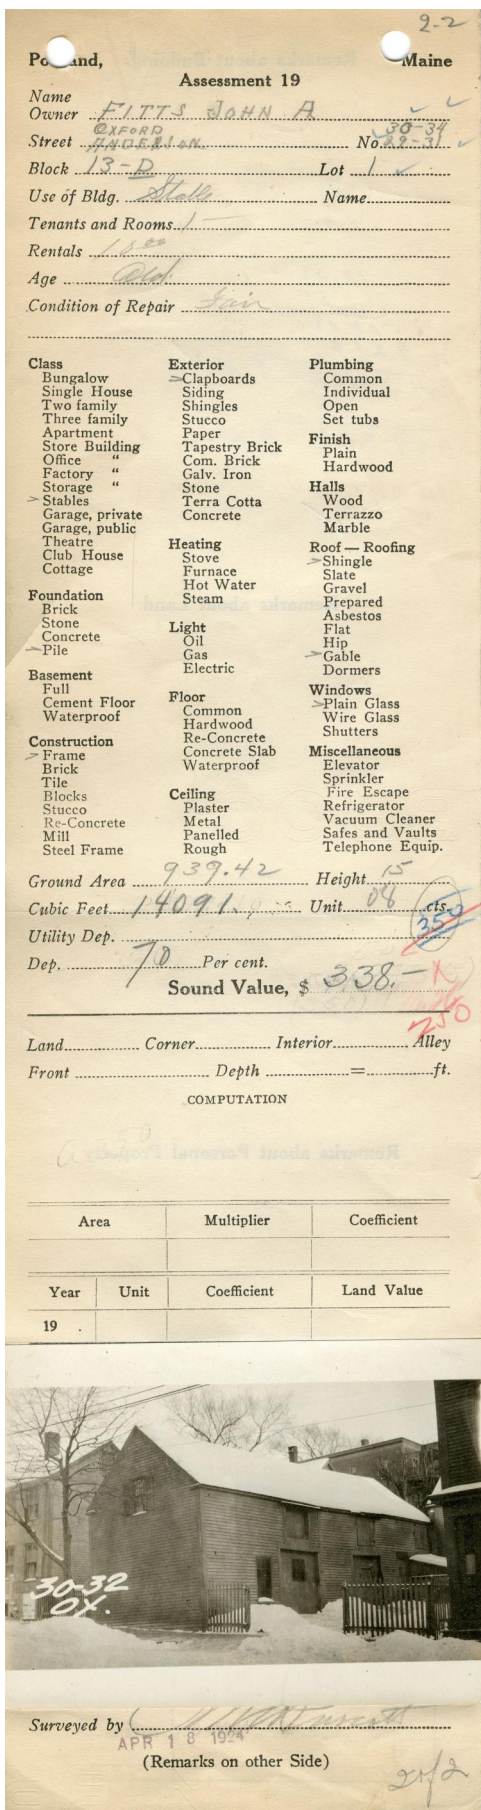 2-2
Portland, Maine
Assessment 19
Name
Owner FITTS JOHN A
OXFORD 30-34
Street ANDERSON No. 29-31
Block 13-D Lot 1
Use of Bldg. Stable Name
Tenants and Rooms 1 -
Rentals 10 00
Age Old
Condition of Repair Fair
Class
Bungalow
Single House
Two family
Three family
Apartment
Store Building
Office "
Factory "
Storage "
Stables
Garage, private
Garage, public
Theatre
Club House
Cottage
Foundation
Brick
Stone
Concrete
Pile
Basement
Full
Cement Floor
Waterproof
Construction
Frame
Brick
Tile
Blocks
Stucco
Re-Concrete
Mill
Steel Frame
Exterior
Clapboards
Siding
Shingles
Stucco
Paper
Tapestry Brick
Com. Brick
Galv. Iron
Stone
Terra Cotta
Concrete
Heating
Stove
Furnace
Hot Water
Steam
Light
Oil
Gas
Electric
Floor
Common
Hardwood
Re-Concrete
Concrete Slab
Waterproof
Ceiling
Plaster
Metal
Panelled
Rough
Plumbing
Common
Individual
Open
Set tubs
Finish
Plain
Hardwood
Halls
Wood
Terrazzo
Marble
Roof — Roofing
Shingle
Slate
Gravel
Prepared
Asbestos
Flat
Hip
Gable
Dormers
Windows
Plain Glass
Wire Glass
Shutters
Miscellaneous
Elevator
Sprinkler
Fire Escape
Refrigerator
Vacuum Cleaner
Safes and Vaults
Telephone Equip.
Ground Area 939.42 Height 15
Cubic Feet 14091. Unit 08 cts.
350
Utility Dep.
Dep. 70 Per cent.
Sound Value, $ 338.-
250
Land Corner Interior Alley
Front Depth = ft.
COMPUTATION
Area Multiplier Coefficient
Year Unit Coefficient Land Value
19 .
30-32
OX.
Surveyed by
APR 18 1924
(Remarks on other Side)
2 of 2